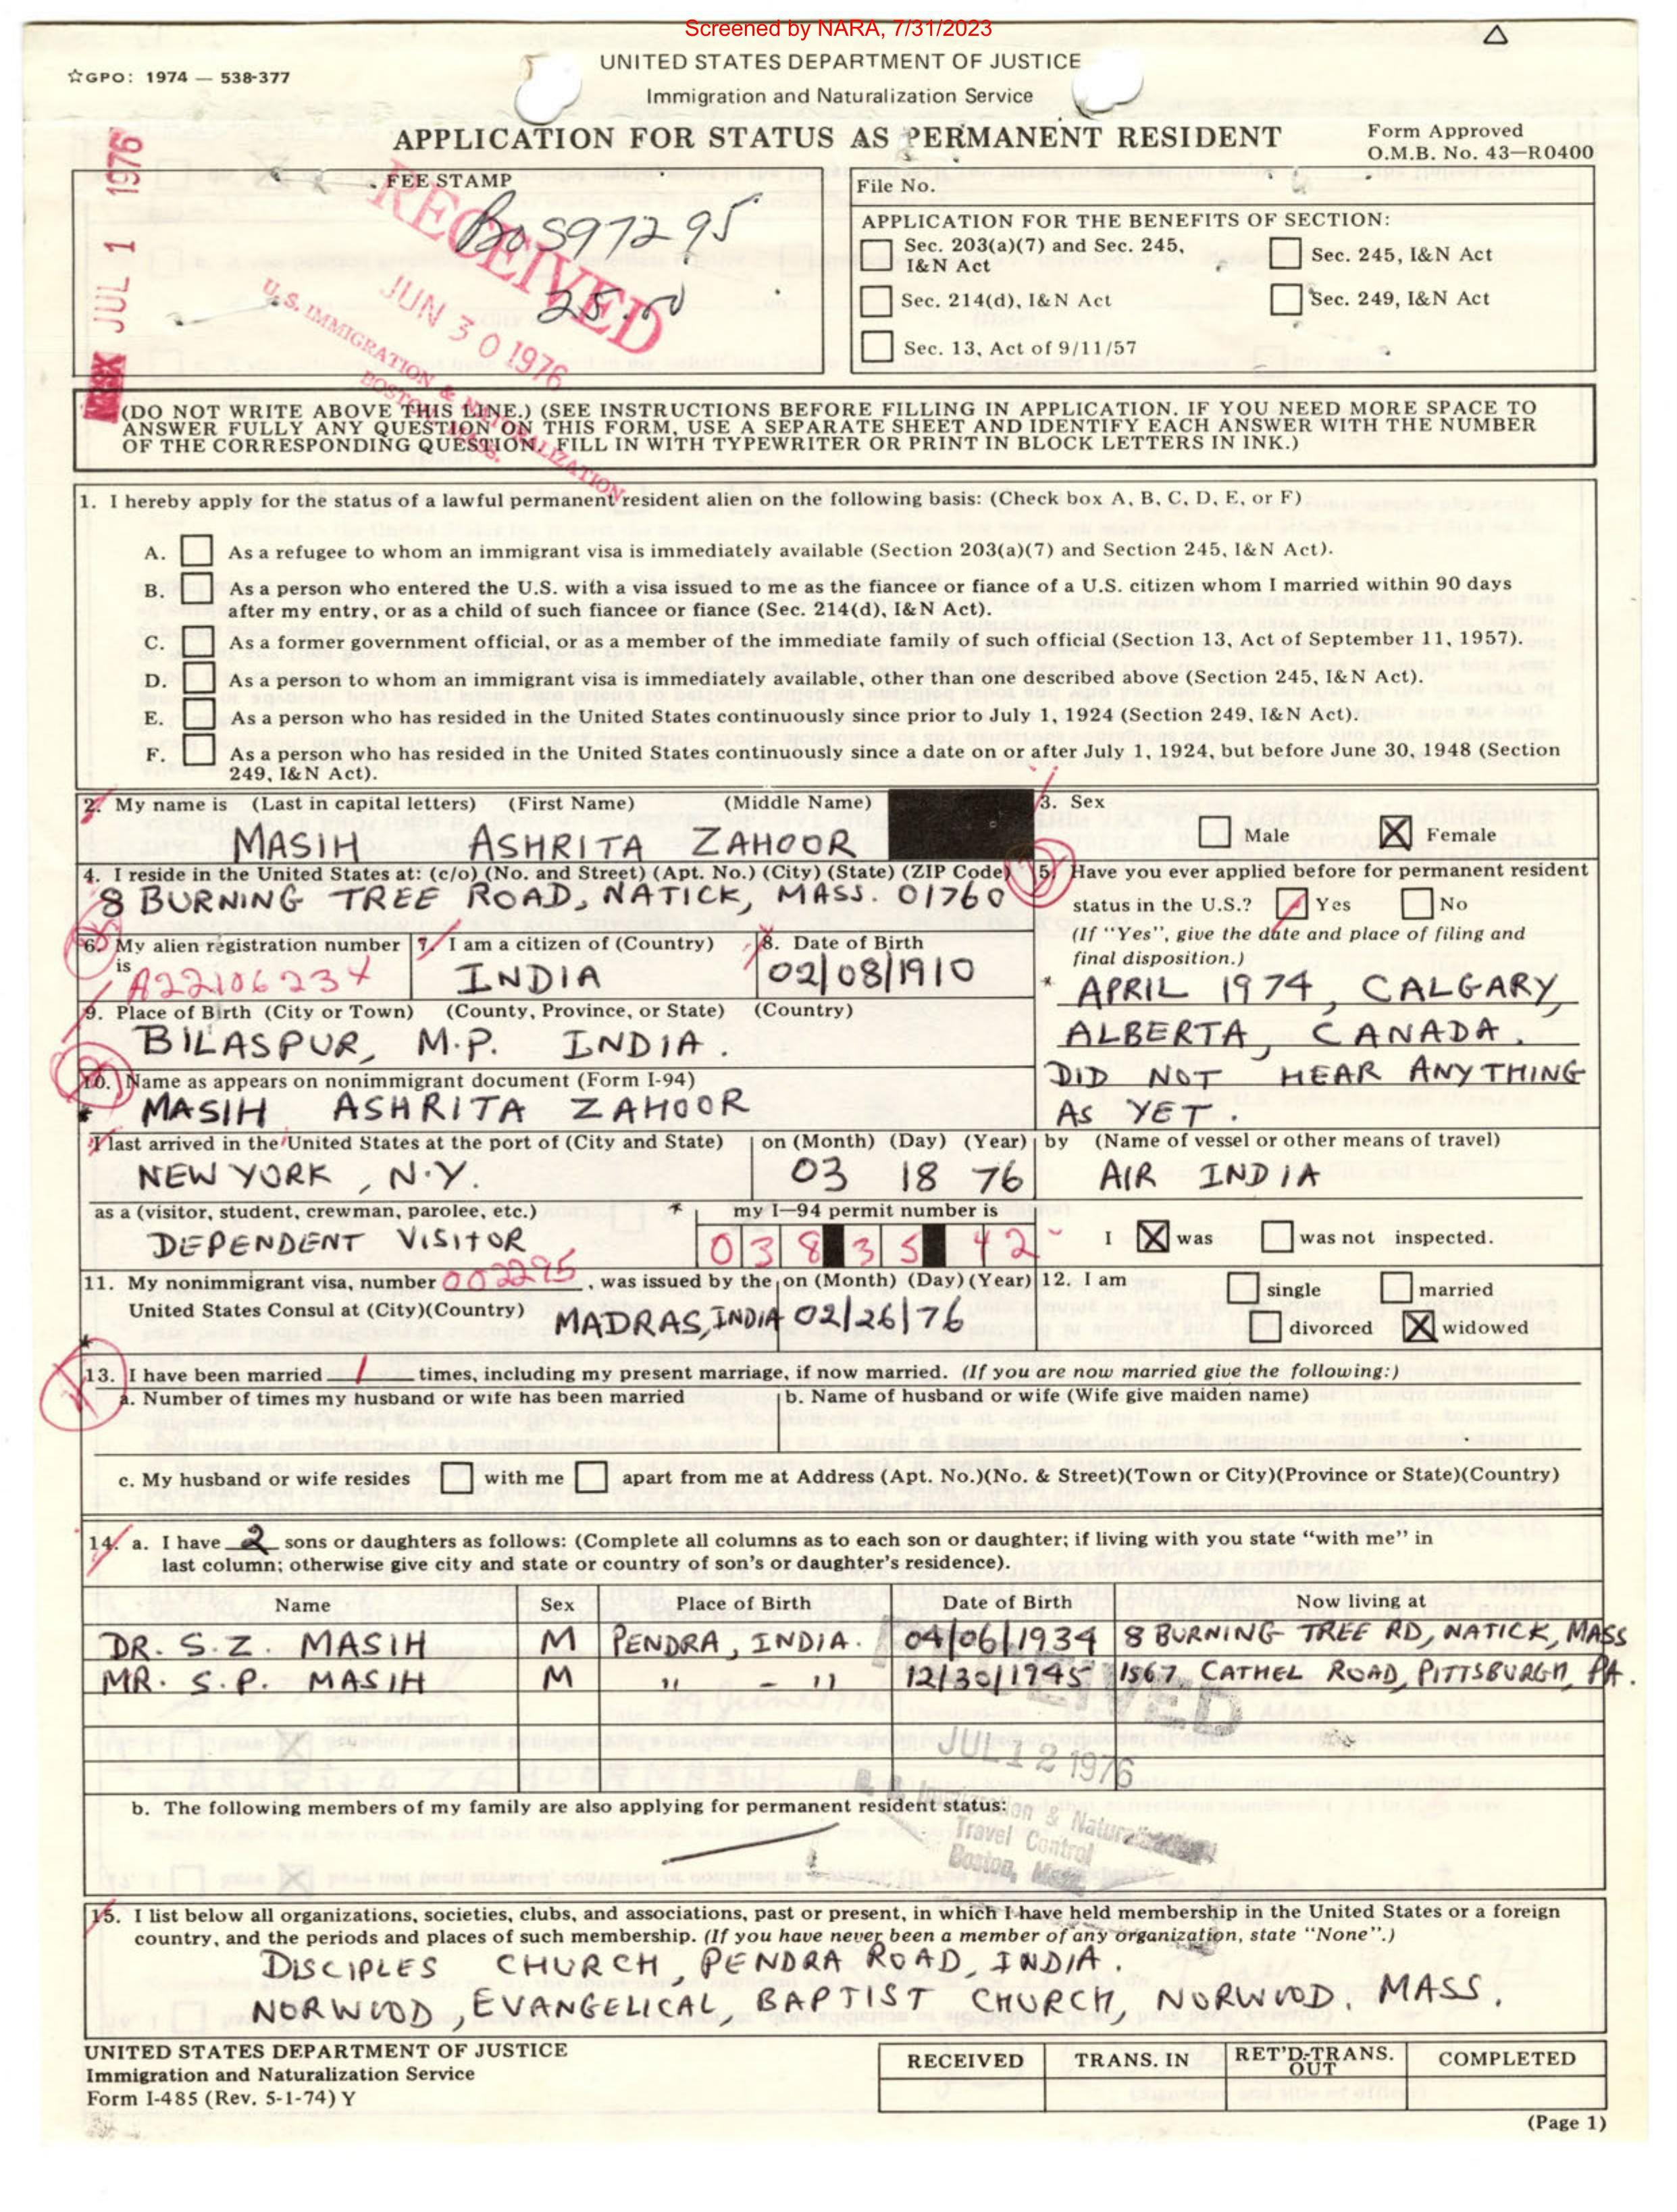 Screened by NARA, 7/31/2023
☆GPO: 1974 — 538-377
UNITED STATES DEPARTMENT OF JUSTICE
Immigration and Naturalization Service
APPLICATION FOR STATUS AS PERMANENT RESIDENT
Form Approved
O.M.B. No. 43—R0400
JUL 1 1976
FEE STAMP
BOS97295
25.00
RECEIVED
JUN 30 1976
U.S. IMMIGRATION & NATURALIZATION
BOSTON, MASS.
File No.
APPLICATION FOR THE BENEFITS OF SECTION:
Sec. 203(a)(7) and Sec. 245, I&N Act
Sec. 245, I&N Act
Sec. 214(d), I&N Act
Sec. 249, I&N Act
Sec. 13, Act of 9/11/57
(DO NOT WRITE ABOVE THIS LINE.) (SEE INSTRUCTIONS BEFORE FILLING IN APPLICATION. IF YOU NEED MORE SPACE TO
ANSWER FULLY ANY QUESTION ON THIS FORM, USE A SEPARATE SHEET AND IDENTIFY EACH ANSWER WITH THE NUMBER
OF THE CORRESPONDING QUESTION. FILL IN WITH TYPEWRITER OR PRINT IN BLOCK LETTERS IN INK.)
1. I hereby apply for the status of a lawful permanent resident alien on the following basis: (Check box A, B, C, D, E, or F)
A. As a refugee to whom an immigrant visa is immediately available (Section 203(a)(7) and Section 245, I&N Act).
B. As a person who entered the U.S. with a visa issued to me as the fiancee or fiance of a U.S. citizen whom I married within 90 days
after my entry, or as a child of such fiancee or fiance (Sec. 214(d), I&N Act).
C. As a former government official, or as a member of the immediate family of such official (Section 13, Act of September 11, 1957).
D. As a person to whom an immigrant visa is immediately available, other than one described above (Section 245, I&N Act).
E. As a person who has resided in the United States continuously since prior to July 1, 1924 (Section 249, I&N Act).
F. As a person who has resided in the United States continuously since a date on or after July 1, 1924, but before June 30, 1948 (Section
249, I&N Act).
2. My name is (Last in capital letters) (First Name) (Middle Name)
MASIH ASHRITA ZAHOOR
3. Sex
Male X Female
4. I reside in the United States at: (c/o) (No. and Street) (Apt. No.) (City) (State) (ZIP Code)
8 BURNING TREE ROAD, NATICK, MASS. 01760
5. Have you ever applied before for permanent resident
status in the U.S.? Yes No
(If "Yes", give the date and place of filing and
final disposition.)
* APRIL 1974, CALGARY,
ALBERTA, CANADA.
DID NOT HEAR ANYTHING
AS YET.
6. My alien registration number
is A22106234
7. I am a citizen of (Country)
INDIA
8. Date of Birth
02/08/1910
9. Place of Birth (City or Town) (County, Province, or State) (Country)
BILASPUR, M.P. INDIA.
10. Name as appears on nonimmigrant document (Form I-94)
* MASIH ASHRITA ZAHOOR
I last arrived in the United States at the port of (City and State) on (Month) (Day) (Year) by (Name of vessel or other means of travel)
NEW YORK, N.Y. 03 18 76 AIR INDIA
as a (visitor, student, crewman, parolee, etc.) * my I—94 permit number is
DEPENDENT VISITOR 038 35 42
I X was was not inspected.
11. My nonimmigrant visa, number 002295, was issued by the on (Month) (Day) (Year)
United States Consul at (City)(Country) MADRAS, INDIA 02/26/76
12. I am single married
divorced X widowed
*
13. I have been married 1 times, including my present marriage, if now married. (If you are now married give the following:)
a. Number of times my husband or wife has been married b. Name of husband or wife (Wife give maiden name)
c. My husband or wife resides with me apart from me at Address (Apt. No.)(No. & Street)(Town or City)(Province or State)(Country)
14. a. I have 2 sons or daughters as follows: (Complete all columns as to each son or daughter; if living with you state "with me" in
last column; otherwise give city and state or country of son's or daughter's residence).
Name Sex Place of Birth Date of Birth Now living at
DR. S. Z. MASIH M PENDRA, INDIA. 04/06/1934 8 BURNING TREE RD, NATICK, MASS
MR. S. P. MASIH M " - " 12/30/1945 1567 CATHEL ROAD, PITTSBURGH, PA.
RECEIVED
JUL 12 1976
U. S. Immigration & Naturalization
Travel Control
Boston, Mass.
b. The following members of my family are also applying for permanent resident status:
15. I list below all organizations, societies, clubs, and associations, past or present, in which I have held membership in the United States or a foreign
country, and the periods and places of such membership. (If you have never been a member of any organization, state "None".)
DISCIPLES CHURCH, PENDRA ROAD, INDIA.
NORWOOD, EVANGELICAL, BAPTIST CHURCH, NORWOOD, MASS.
UNITED STATES DEPARTMENT OF JUSTICE
Immigration and Naturalization Service
Form I-485 (Rev. 5-1-74) Y
RECEIVED TRANS. IN RET'D-TRANS. OUT COMPLETED
(Page 1)